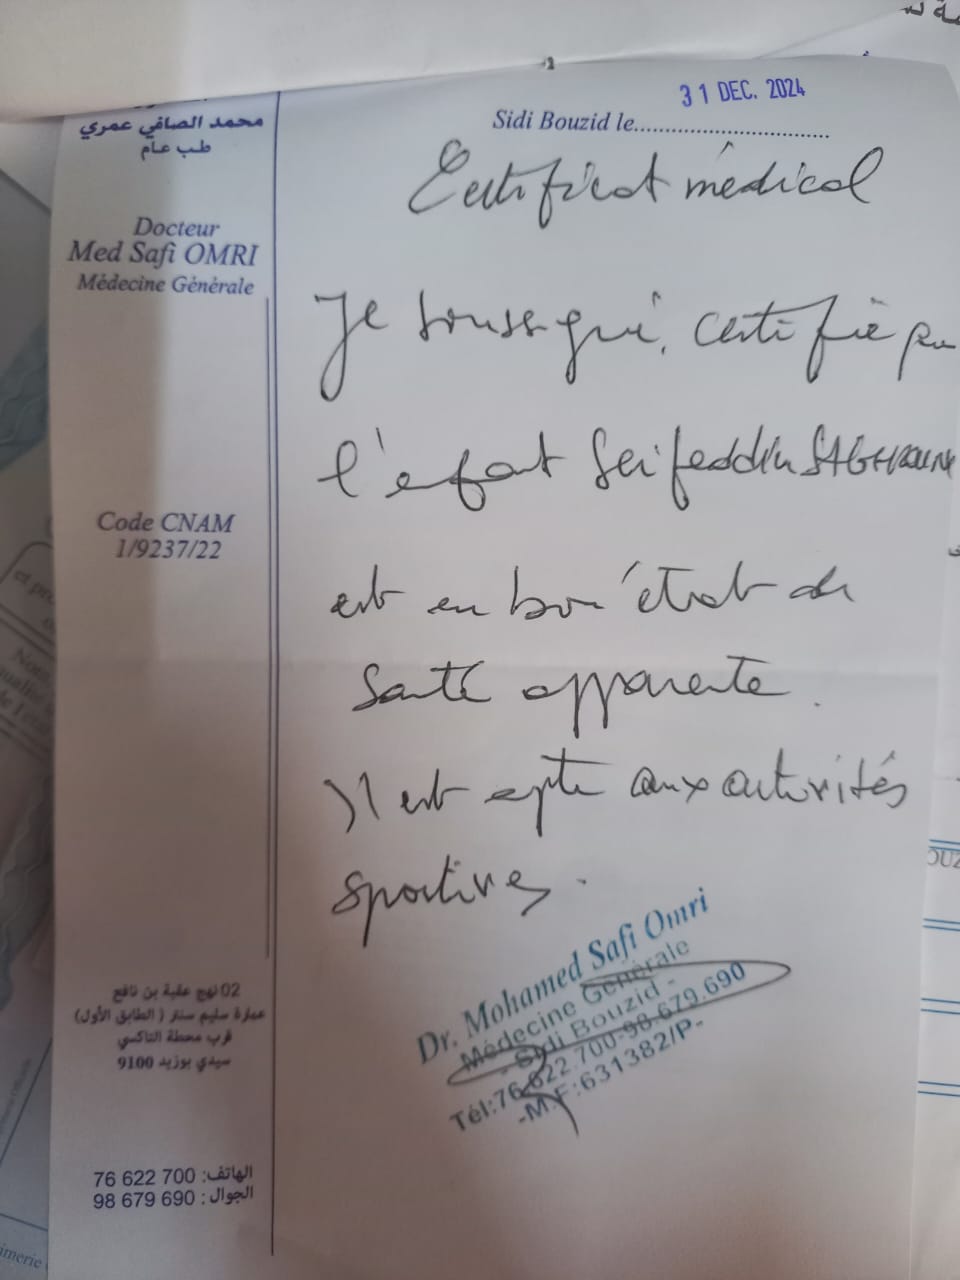 31 DEC. 2024
Sidi Bouzid le
محمد الصافي عمري
طب عام
Docteur
Med Safi OMRI
Médecine Générale
Code CNAM
1/9237/22
Certificat médical
Je soussigné, certifie que
l'enfant Seifeddin
est en bon état de
santé apparente.
Il est apte aux activités
sportives.
Dr. Mohamed Safi Omri
Médecine Générale
- Sidi Bouzid -
Tél:76.622.700-98.679.690
-M.F:631382/P-
02 نهج عقبة بن نافع
عمارة سليم سنتر (الطابق الأول)
قرب محطة التاكسي
سيدي بوزيد 9100
الهاتف: 76 622 700
الجوال: 98 679 690